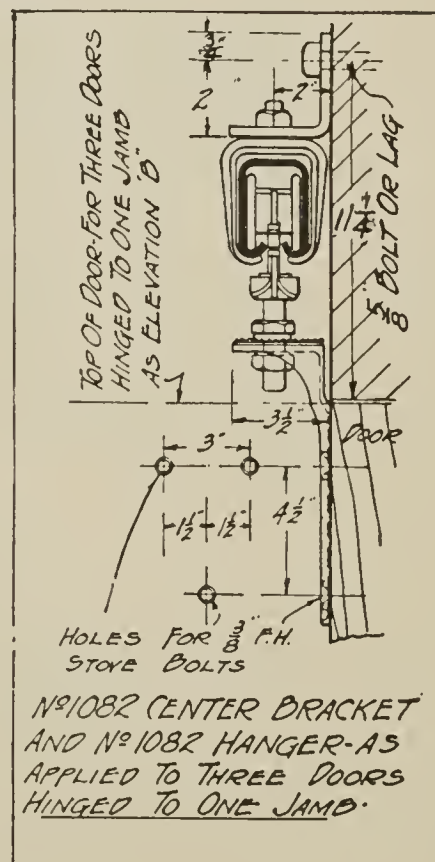 3/4"
2
2"
TOP OF DOOR-FOR THREE DOORS
HINGED TO ONE JAMB
AS ELEVATION "B"
5/8 BOLT OR LAG
3 1/2"
DOOR
3"
1 1/2" 1 1/2"
4 1/2"
HOLES FOR 3/8" F.H.
STOVE BOLTS
Nº1082 CENTER BRACKET
AND Nº1082 HANGER-AS
APPLIED TO THREE DOORS
HINGED TO ONE JAMB.